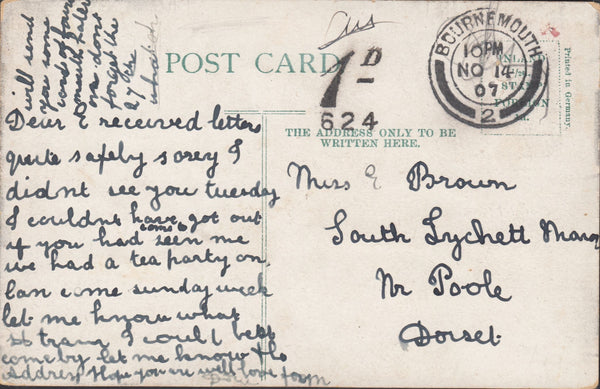 will send
you some
views of Bournemouth later
on dont
forget the
27 Feb
Aus
POST CARD
1D
624
BOURNEMOUTH
10 PM
NO 14
07
2
INLAND
STAMP
FOREIGN
Printed in Germany.
THE ADDRESS ONLY TO BE
WRITTEN HERE.
Dear E received letter
quite safeby sorey I
didnt see you tuesday
I couldnt have got out
come &
if you had seen me
we had a tea party on
Can come sunday week
let me know what
trane I could best
come by let me know the
address Hope you are well love from
Miss E Brown
South Lychett Manor
Nr Poole
Dorset